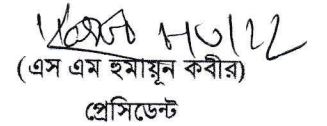 (এস এম হুমায়ূন কবীর)
প্রেসিডেন্ট